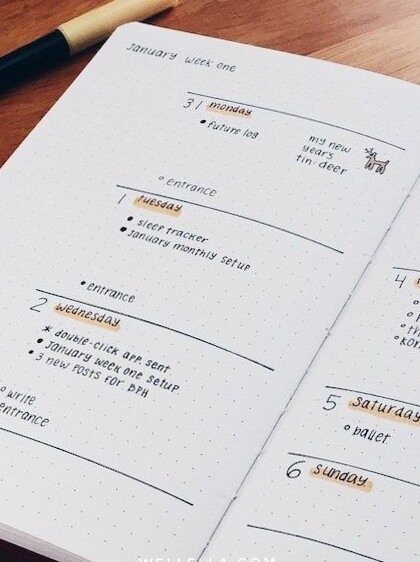 January week one
31 monday
• future log
my new
year's
tin deer
° entrance
1 tuesday
• sleep tracker
• January monthly setup
• entrance
2 wednesday
* double-click app sent
• January week one setup
• 3 new posts for BPH
° write
entrance
4
5 saturday
° ballet
6 sunday
WELLELLA.COM